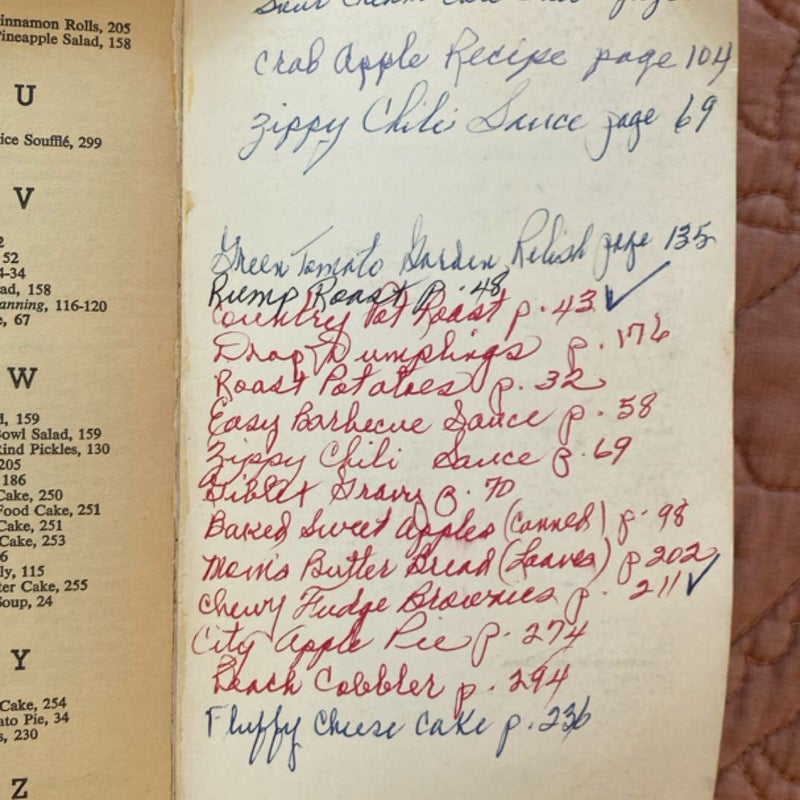 innamon Rolls, 205
ineapple Salad, 158
U
ice Soufflé, 299
V
2
52
4-34
ad, 158
anning, 116-120
e, 67
W
d, 159
Bowl Salad, 159
Rind Pickles, 130
205
186
Cake, 250
Food Cake, 251
Cake, 251
Cake, 253
6
ly, 115
ter Cake, 255
Soup, 24
Y
Cake, 254
ato Pie, 34
s, 230
Z
Sour Cream
Crab Apple Recipe page 104
Zippy Chili Sauce page 69
Green Tomato Garden Relish page 135
Rump Roast p. 48
Country Pot Roast p. 43 ✓
Drop Dumplings p. 176
Roast Potatoes p. 32
Easy Barbecue Sauce p. 58
Zippy Chili Sauce p. 69
Giblet Gravy p. 70
Baked Sweet Apples (Canned) p. 98
Mom's Butter Bread (Loaves) p 202
Chewy Fudge Brownies p. 211 ✓
City Apple Pie p. 274
Peach Cobbler p. 294
Fluffy Cheese Cake p. 236